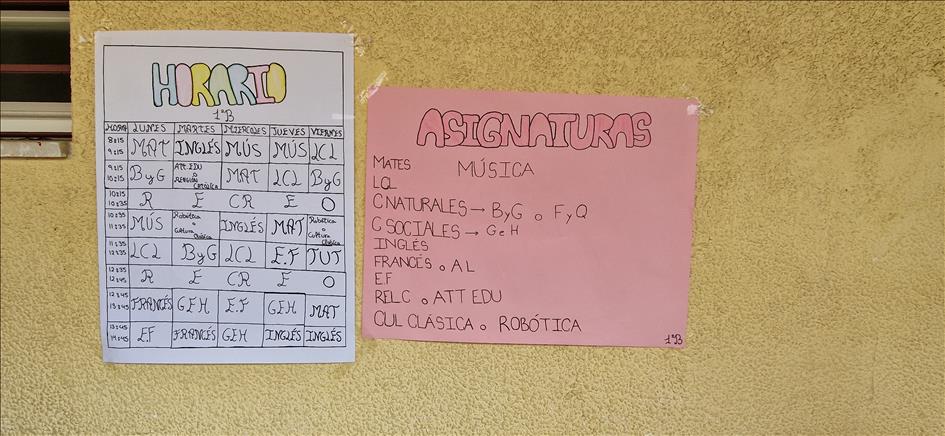 HORARIO
1ºB
HORA LUNES MARTES MIERCOLES JUEVES VIERNES
8:15 9:15 MAT INGLÉS MÚS MÚS LCL
9:15 10:15 ByG ATT.EDU o RELIGIÓN CATÓLICA MAT LCL ByG
10:15 10:35 R E CR E O
10:35 11:35 MÚS Robótica o Cultura Clásica INGLÉS MAT Robótica o Cultura Clásica
11:35 12:35 LCL ByG LCL E.F TUT
12:35 12:45 R E CR E O
12:45 13:45 FRANCÉS GEH E.F GEH MAT
13:45 14:45 E.F FRANCÉS GEH INGLÉS INGLÉS
ASIGNATURAS
MATES MÚSICA
LCL
C NATURALES → ByG o FyQ
C SOCIALES → GeH
INGLÉS
FRANCÉS o AL
E.F
RELC o ATT EDU
CUL CLÁSICA o ROBÓTICA
1ºB